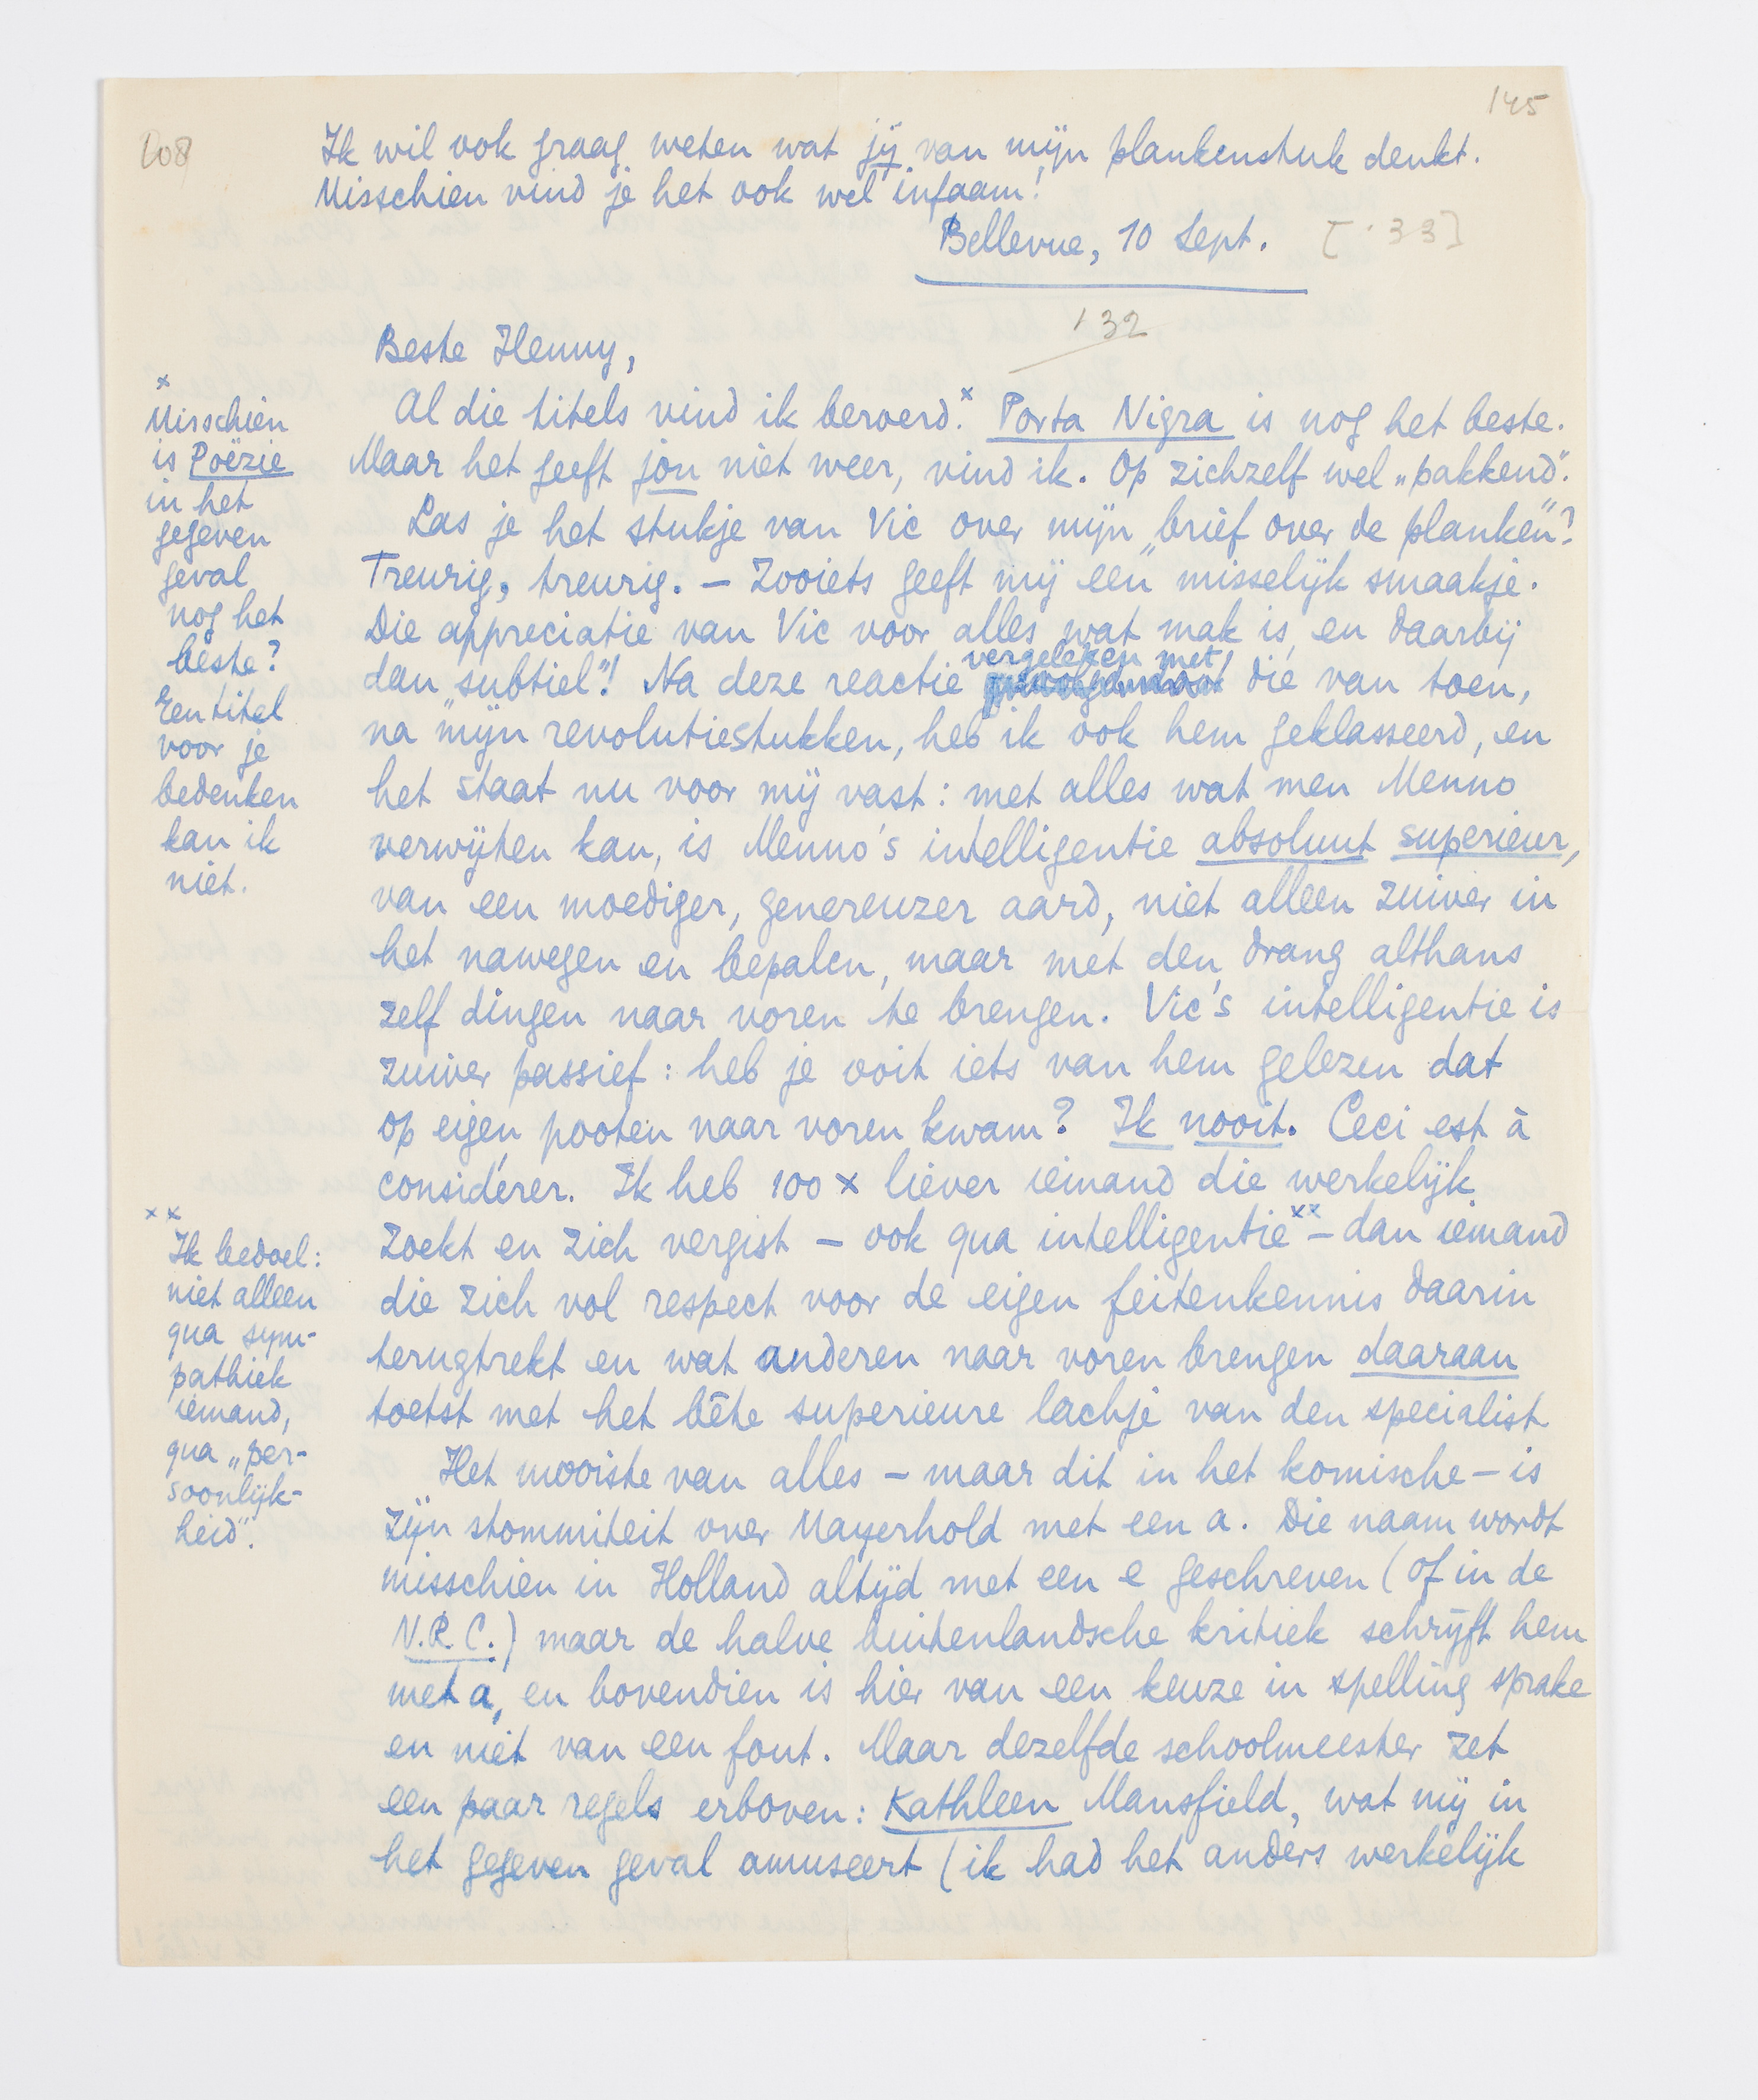 145
108
Ik wil ook graag weten wat jij van mijn plankenstuk denkt.
Misschien vind je het ook wel infaam!
Bellevue, 10 Sept. ['33]
'32
Beste Henny,
Al die titels vind ik beroerd.x Porta Nigra is nog het beste.
Maar het geeft jou niet weer, vind ik. Op zichzelf wel „pakkend".
Las je het stukje van Vic over mijn „brief over de planken"?
Treurig, treurig. – Zooiets geeft mij een misselijk smaakje.
Die appreciatie van Vic voor alles wat mak is, en daarbij
dan „subtiel"! Na deze reactie vergeleken met die van toen,
na mijn revolutiestukken, heb ik ook hem geklasseerd, en
het staat nu voor mij vast: met alles wat men Menno
verwijten kan, is Menno's intelligentie absoluut superieur,
van een moediger, genereuzer aard, niet alleen zuiver in
het nawegen en bepalen, maar met den drang althans
zelf dingen naar voren te brengen. Vic's intelligentie is
zuiver passief: heb je ooit iets van hem gelezen dat
op eigen pooten naar voren kwam? Ik nooit. Ceci est à
considérer. Ik heb 100 x liever iemand die werkelijk
zoekt en zich vergist – ook qua intelligentie xx – dan iemand
die zich vol respect voor de eigen feitenkennis daarin
terugtrekt en wat anderen naar voren brengen daaraan
toetst met het bête superieure lachje van den specialist
Het mooiste van alles – maar dit in het komische – is
zijn stommiteit over Mayerhold met een a. Die naam wordt
misschien in Holland altijd met een e geschreven (of in de
N.R.C.) maar de halve buitenlandsche kritiek schrijft hem
met a, en bovendien is hier van een keuze in spelling sprake
en niet van een fout. Maar dezelfde schoolmeester zet
een paar regels erboven: Kathleen Mansfield, wat mij in
het gegeven geval amuseert (ik had het anders werkelijk
x
Misschien
is Poëzie
in het
gegeven
geval
nog het
beste?
Een titel
voor je
bedenken
kan ik
niet.
x x
Ik bedoel:
niet alleen
qua sym-
pathiek
iemand,
qua „per-
soonlijk-
heid".